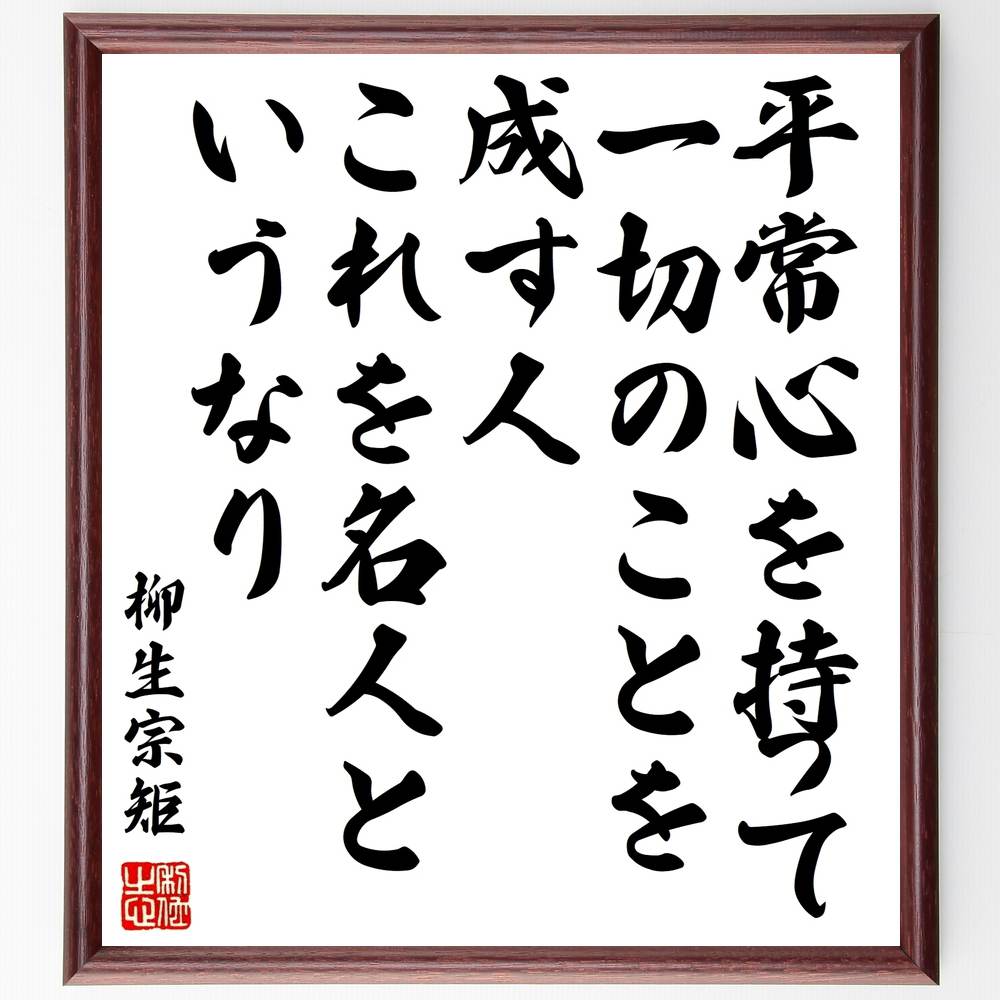 平常心を持って
一切のことを
成す人
これを名人と
いうなり
柳生宗矩